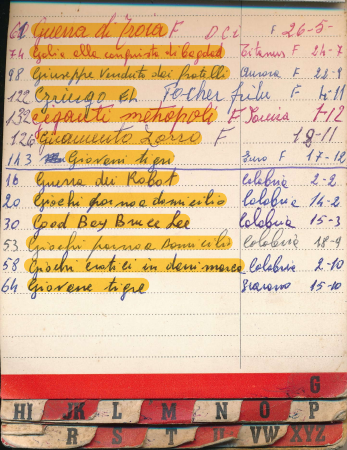 61 Guerra di Troia F DCI F 26-5-
74 Golia alla conquista di Bagdad Titanus F 24-7
98 Giuseppe venduto dai fratelli Aurora F 22-9
122 Gringo El F 4-11
132 Giganti metropoli F F 12
126 Giuramento Zorro F 18-11
143 Giovani tigri F 17-12
16 Guerra dei Robot Calabria 2-2
20 Giochi porno a domicilio Calabria 14-2
30 Good Bay Bruce Lee Calabria 15-3
53 Giochi porno a domicilio Calabria 18-9
58 Giochi erotici in danimarca Calabria 2-10
64 Giovane tigre 15-10
G
HI JK L M N O P
R S T U VW XYZ